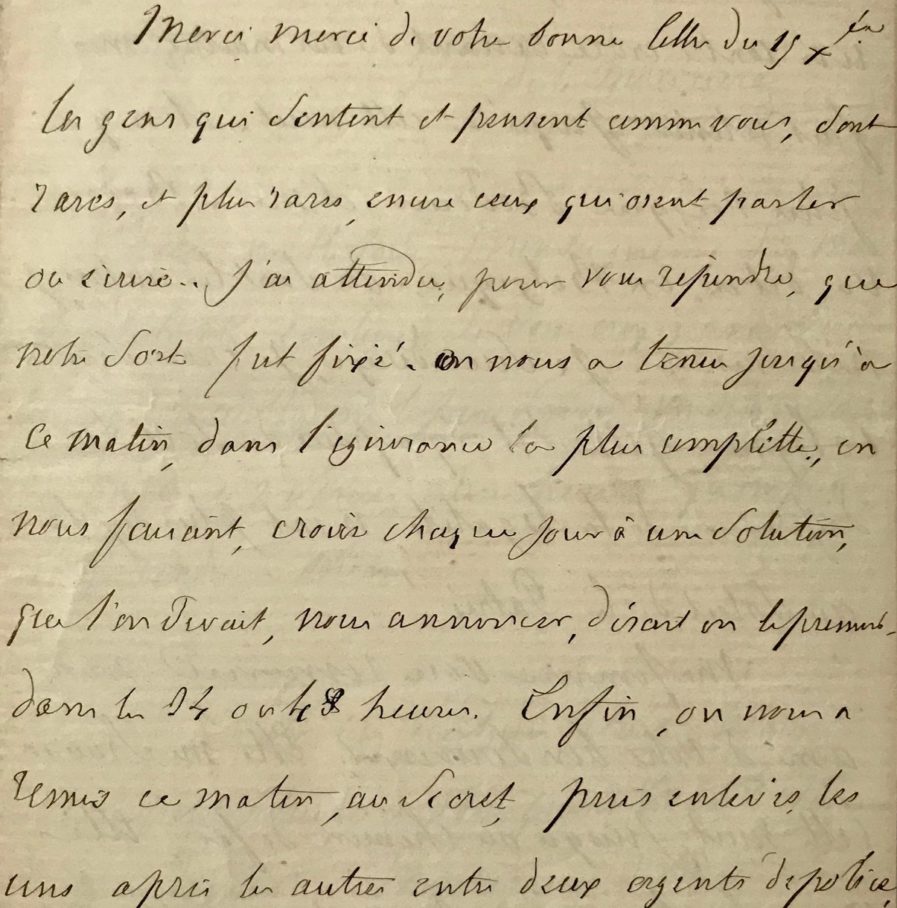 Merci merci de votre bonne lettre du 19 Xbre
les gens qui sentent et pensent comme vous, sont
rares, et plus rares, encore ceux qui osent parler
ou écrire.. J'ai attendu, pour vous répondre, que
notre sort fut fixé. on nous a tenu jusqu'à
ce matin, dans l'ignorance la plus complette, en
nous faisant, croire chaque jour à une solution,
que l'on devait, nous annoncer, disait on
dans les 24 ou 48 heures. Enfin, on nous a
remis ce matin, au secret, puis enlevés, les
uns après les autres entre deux agents de police,